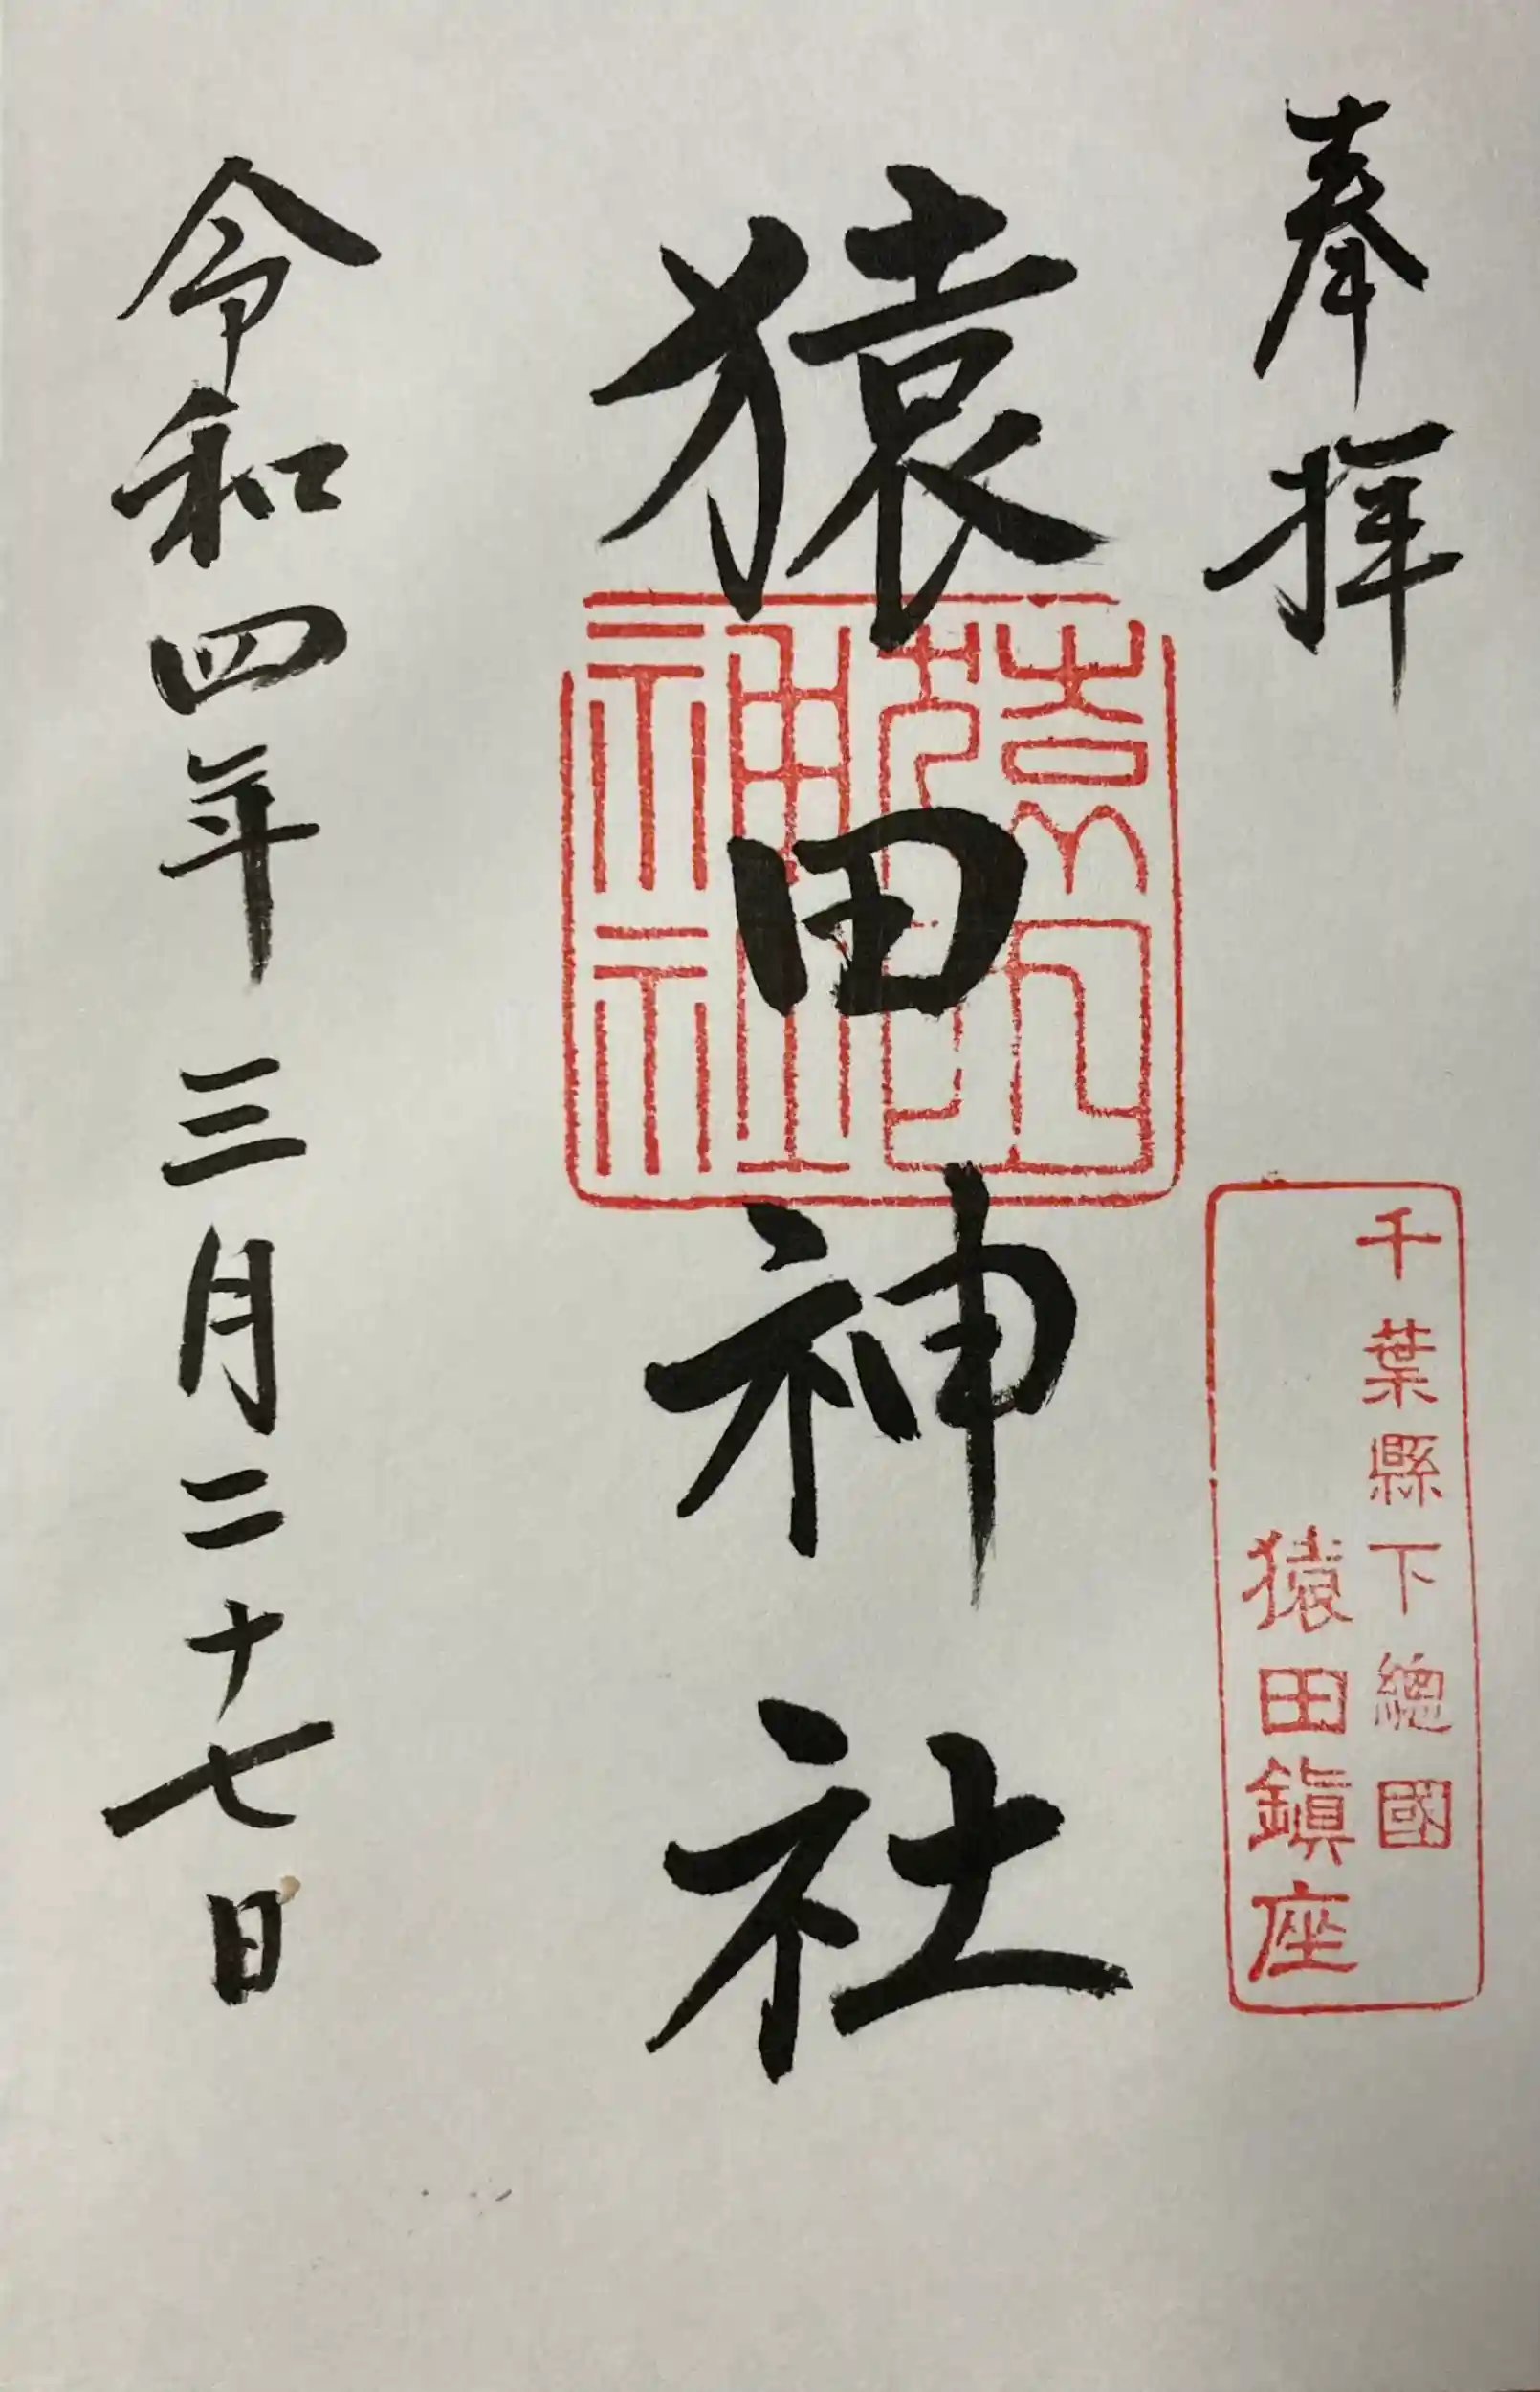 奉拝
千葉縣下總國
猿田鎭座
猿田神社
令和四年三月二十七日